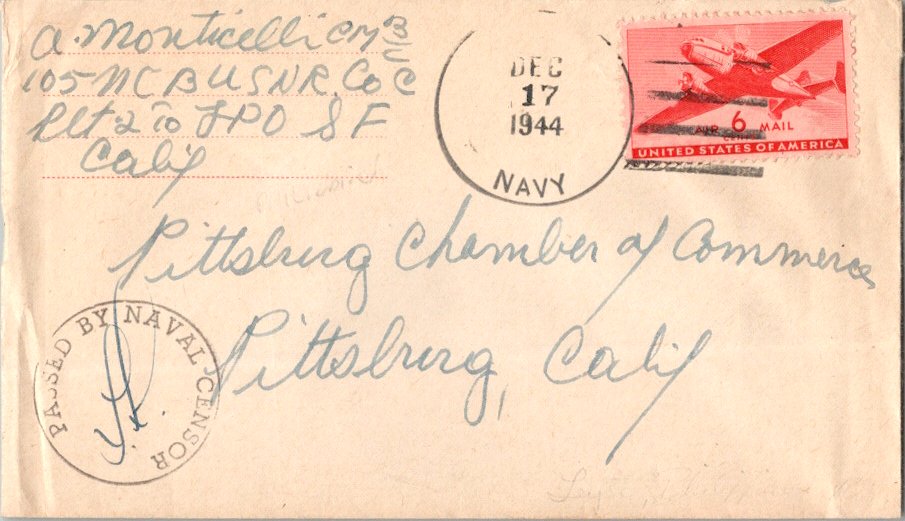 A. Monticelli CM 3/c
105 NCB USNR. Co C
Plt 2 % FPO SF
Calif
DEC
17
1944
NAVY
AIR 6 MAIL
CENTS
UNITED STATES OF AMERICA
Pittsburg Chamber of Commerce
Pittsburg, Calif
PASSED BY NAVAL CENSOR
Leyte, Philippine